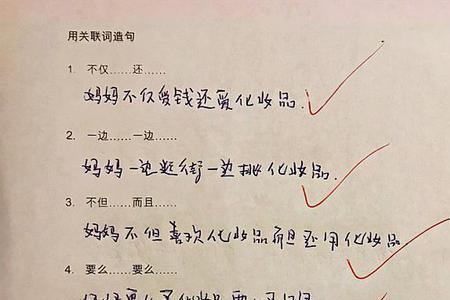 用关联词造句
1. 不仅……还……
妈妈不仅爱钱还爱化妆品.
2. 一边……一边……
妈妈一边逛街一边挑化妆品.
3. 不但……而且……
妈妈不但喜欢化妆品而且还用化妆品.
4. 要么……要么……